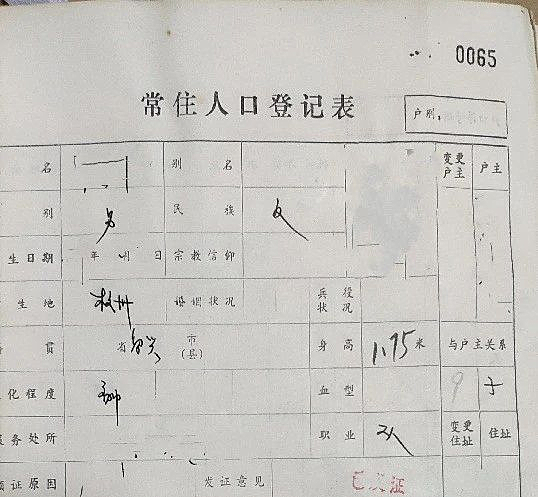 0065
常住人口登记表
户别:
名 别名 变更户主 户主
别 男 民族 汉
生日期 年 月 日 宗教信仰
生地 杭州 婚姻状况 兵役状况
贯 省 绍兴 市(县) 身高 1.75 米 与户主关系
化程度 血型 子
服务处所 职业 工人 变更住址 住址
领证原因 发证意见 已发证